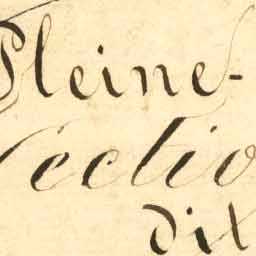 Pleine-
Sectio
dit